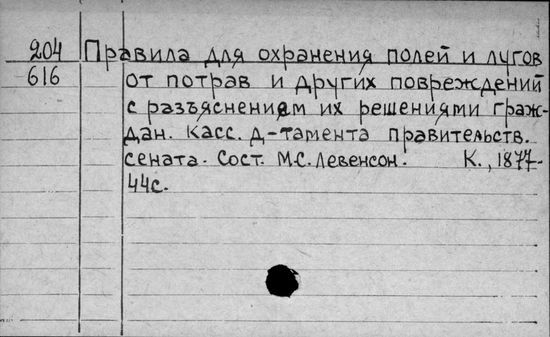 204 Правила для охранения полей и лугов
616 от потрав и других повреждений
с разъяснением их решениями граж-
дан. касс. д-тамента правительств.
сената. Сост. М.С. Левенсон. К., 1877.
44с.